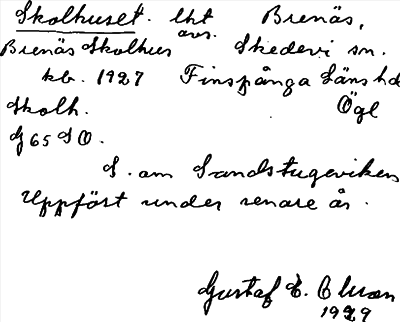 Skolhuset. lht Brenäs,
avs.
Brenäs Skolhus Skedevi sn.
kb. 1927 Finspånga Läns hd
Skolh. Ögl
G 65 S O.
S. om Sandstugeviken
Uppfört under senare år.
Gustaf E.
1929